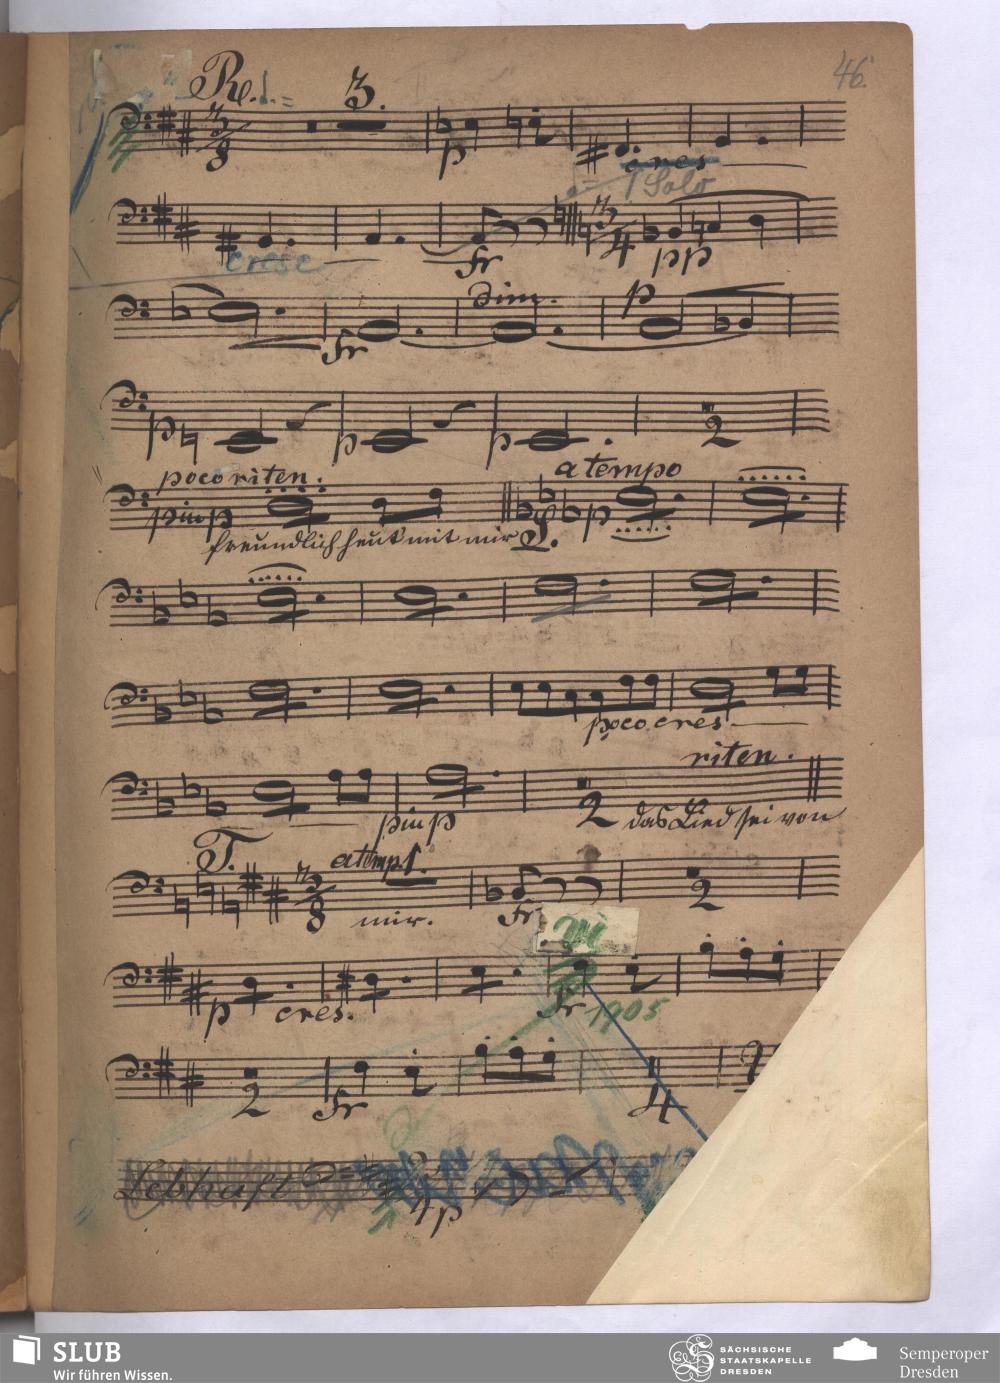 46.
R. 3.
3/8 p cres
1 Solo
cresc fr 3/4 pp
dim. p
fr
p p p 2
poco riten. a tempo
pizz p p
freundlich heut mit mir S.
poco cres
riten.
pizz p 2 das Lied sei von
T. a tempo 1.
3/8 mir. fr 2
p cres. fr pos
2 fr 4
Lebhaft 4 p
SLUB
Wir führen Wissen.
SÄCHSISCHE
STAATSKAPELLE
DRESDEN
Semperoper
Dresden